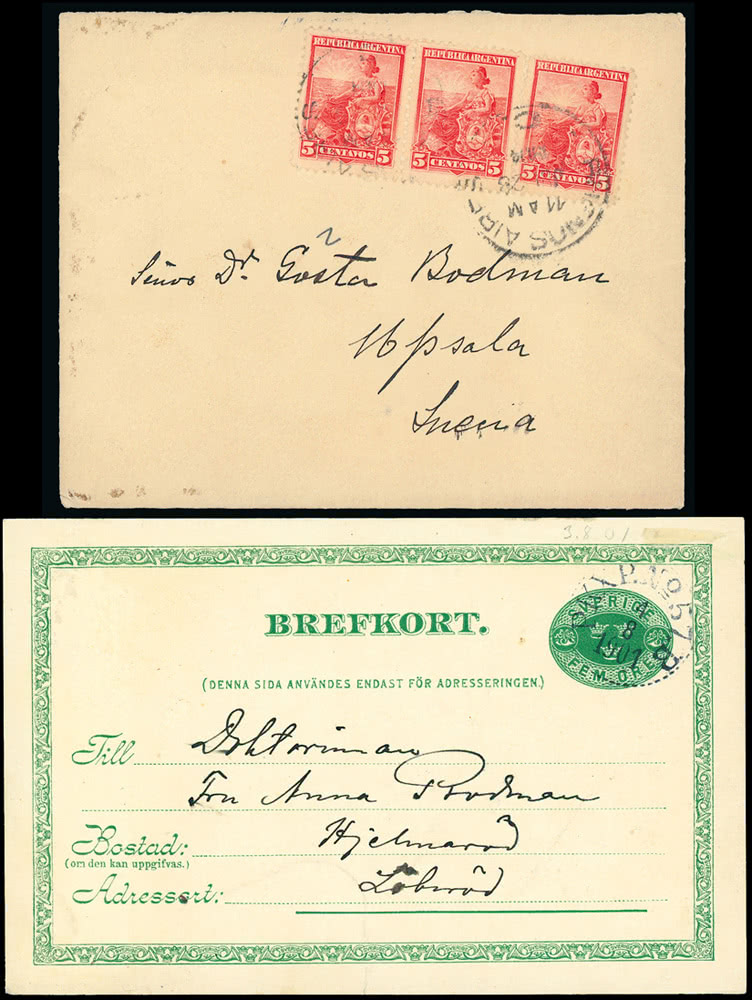 REPUBLICA ARGENTINA REPUBLICA ARGENTINA REPUBLICA ARGENTINA
5 CENTAVOS 5 5 CENTAVOS 5 5 CENTAVOS 5
BUENOS AIRES
11 AM
Señor Dr. Gösta Bodman
Upsala
Suecia
3.8 01
BREFKORT.
SVERIGE
FEM ÖRE
PKXP. No 57 B
4
8
1901
(DENNA SIDA ANVÄNDES ENDAST FÖR ADRESSERINGEN.)
Till Doktorinnan
Fru Anna Bodman
Bostad: Hjelmaröd
(om den kan uppgifvas.)
Adressort: Löberöd